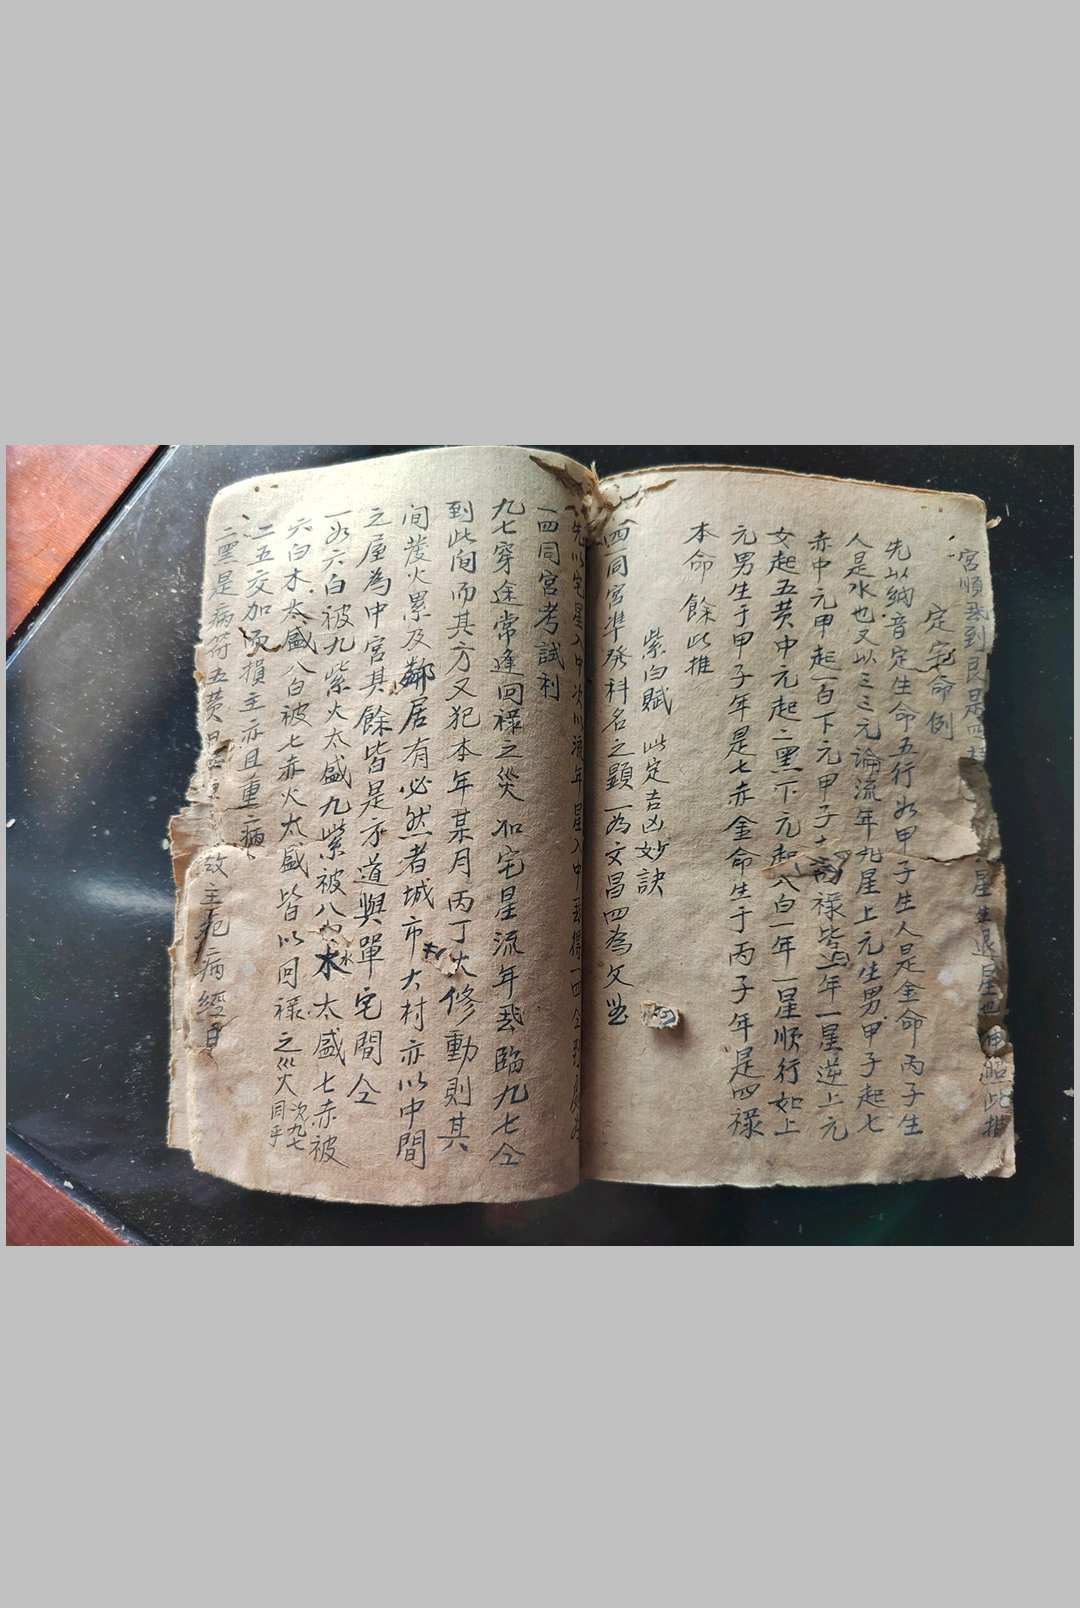 宮順飛到艮是四
星生退星也
此推
定宅命例
先以納音定生命五行如甲子生人是金命丙子生
人是水也又以三元論流年九星上元生男甲子起七
赤中元甲起一白下元甲子
祿皆逆年一星逆上元
女起五黄中元起二黑下元起八白一年一星順行如上
元男生于甲子年是七赤金命生于丙子年是四禄
本命 餘此推
紫白賦 此定吉凶妙訣
四一同宮準發科名之顯一為文昌四為文
先以宅星入中次以流年星入中飛得一四
一四同宮考試利
九七穿途常逢回禄之災 如宅星流年飛臨九七仝
到此間而其方又犯本年某月丙丁火修動則其
间發火累及鄰居有必然者城市大村亦以中間
之屋為中宮其餘皆是 道與單宅間仝
一如六白被九紫火太盛九紫被八白
木
水
太盛七赤被
六白木太盛八白被七赤火太盛皆以回禄之災
次九七
同乎
二五交加而損主亦且重病
二黑是病符五黄
故主犯病經